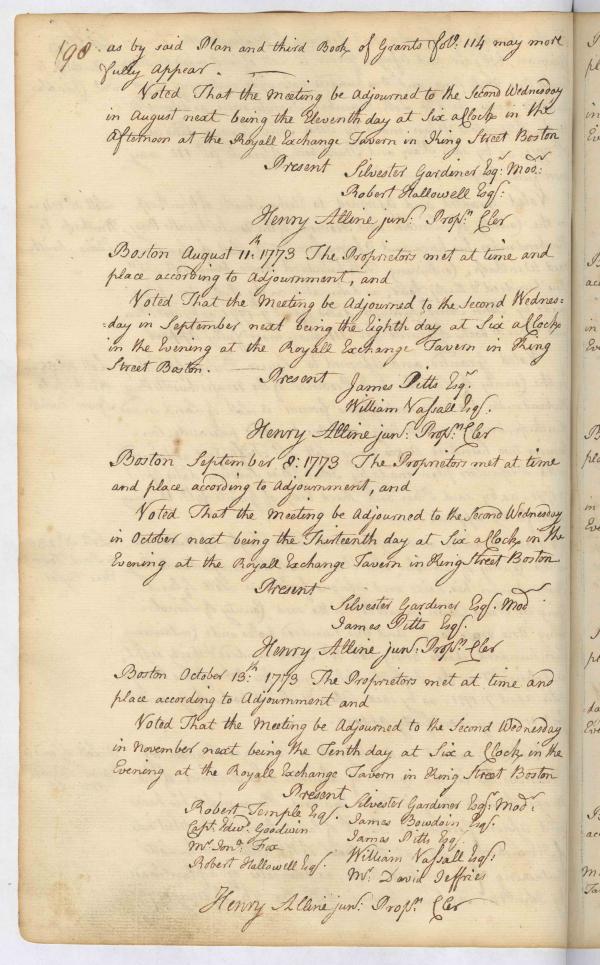 198 as by said Plan and third Book of Grants folo. 114 may more
fully Appear.
Voted That the Meeting be Adjourned to the Second Wednesday
in August next being the Eleventh day at Six a Clock in the
Afternoon at the Royall Exchange Tavern in King Street Boston
Present Silvester Gardiner Esqr. Modr.
Robert Hallowell Esqr.
Henry Alline junr. Proprs. Cler
Boston August 11th. 1773 The Proprietors met at time and
place according to Adjournment, and
Voted That the Meeting be Adjourned to the Second Wednes=
=day in September next being the Eighth day at Six a Clock
in the Evening at the Royall Exchange Tavern in King
Street Boston.
Present James Pitts Esqr.
William Vassall Esqr.
Henry Alline junr. Proprs. Cler
Boston September 8: 1773 The Proprietors met at time
and place according to Adjournment, and
Voted That the Meeting be Adjourned to the Second Wednesday
in October next being the Thirteenth day at Six a Clock in the
Evening at the Royall Exchange Tavern in King Street Boston
Present
Silvester Gardiner Esqr. Modr.
James Pitts Esqr.
Henry Alline junr. Proprs. Cler
Boston October 13th. 1773 The Proprietors met at time and
place according to Adjournment and
Voted That the Meeting be Adjourned to the Second Wednesday
in November next being the Tenth day at Six a Clock in the
Evening at the Royall Exchange Tavern in King Street Boston
Present
Robert Temple Esqr. Silvester Gardiner Esqr. Modr.
Capt. Edwd. Goodwin James Bowdoin Esqr.
Mr. Jona. Fox James Pitts Esqr.
Robert Hallowell Esqr. William Vassall Esqr.
Mr. David Jeffries
Henry Alline junr. Proprs. Cler